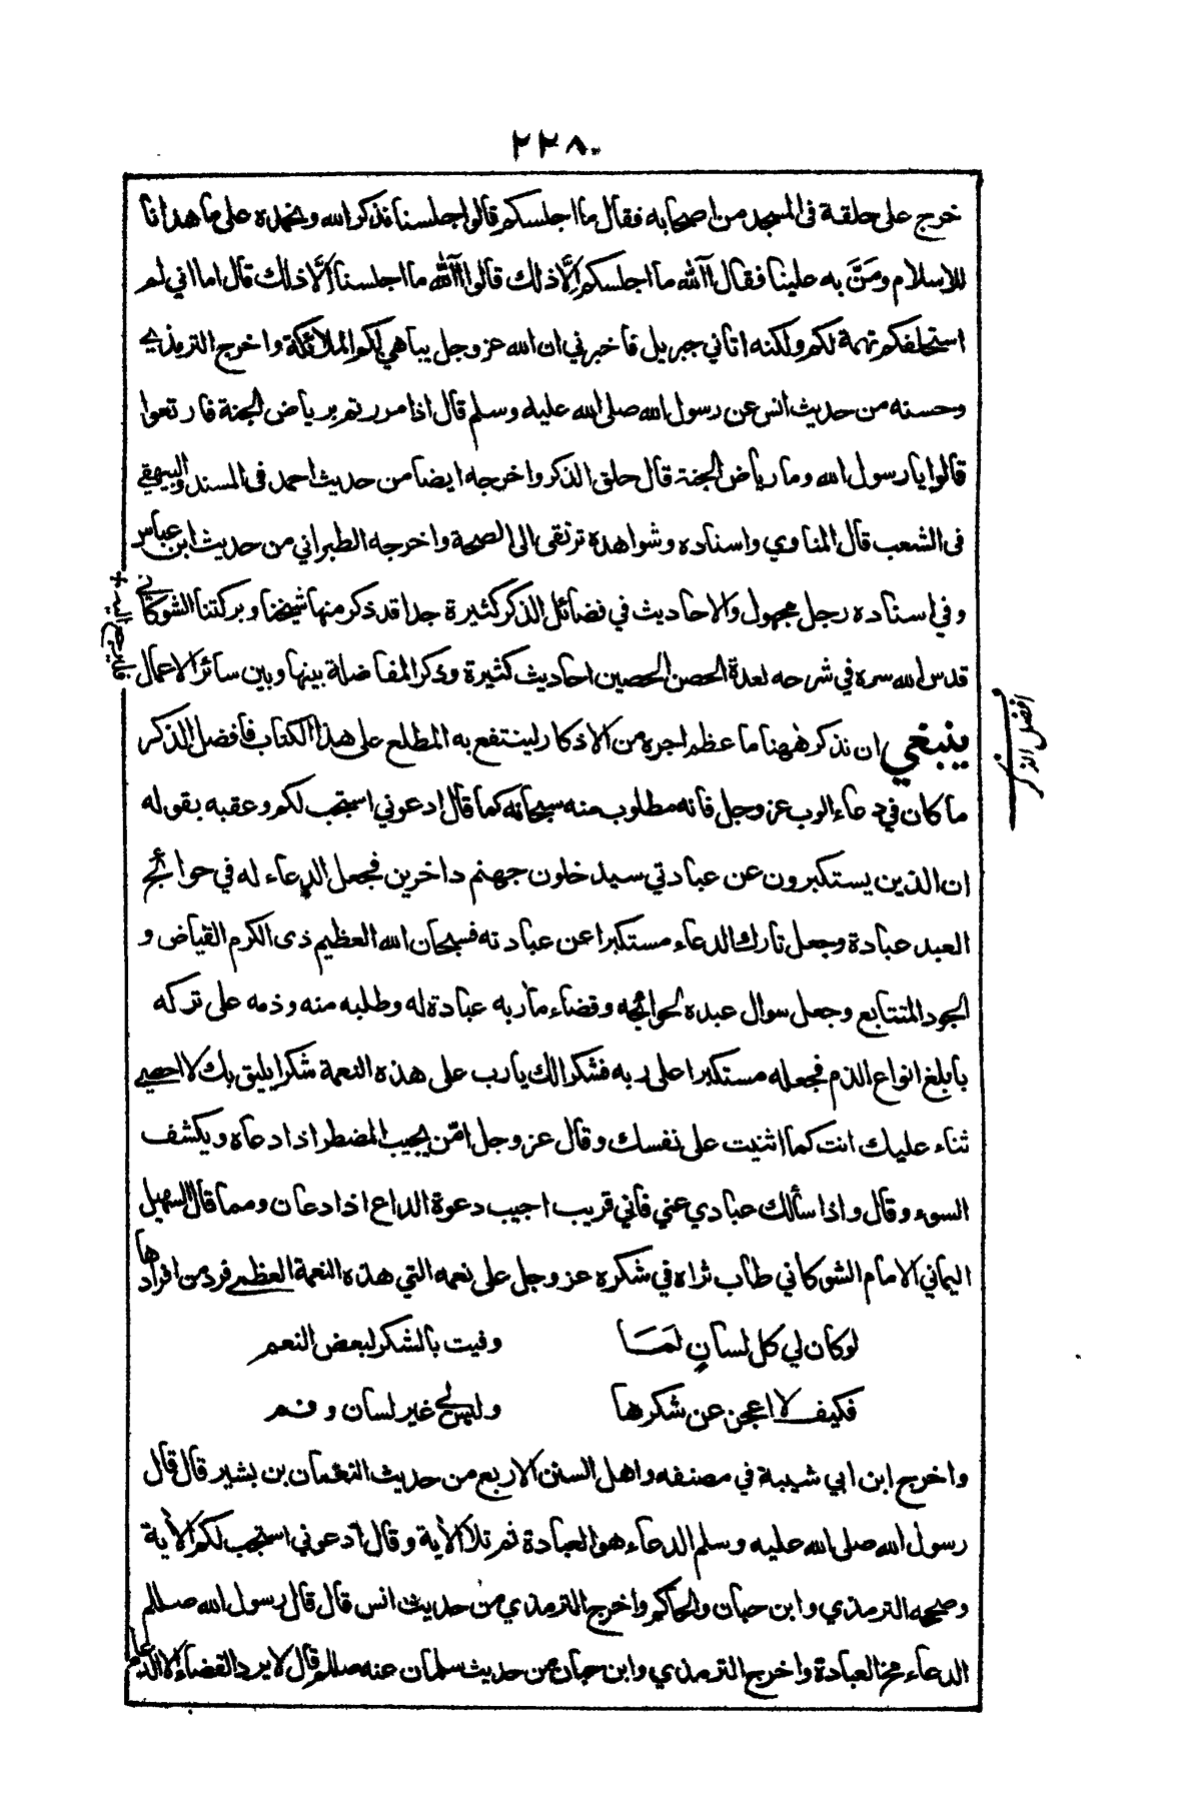 ٢٢٨
خرج على حلقة فى المسجد من اصحابه فقال ما اجلسكم قالوا جلسنا نذكر الله ونحمده على ما هدانا
للاسلام ومَنَّ به علينا فقال آالله ما اجلسكم إلَّا ذلك قالوا آالله ما اجلسنا إلَّا ذلك قال اما اني لم
استحلفكم تهمة لكم ولكنه اتاني جبريل فاخبرني ان الله عز وجل يباهي بكم الملائكة واخرج الترمذي
وحسنه من حديث انس عن رسول الله صلى الله عليه وسلم قال اذا مررتم برياض الجنة فارتعوا
قالوا يا رسول الله وما رياض الجنة قال حلق الذكر واخرجه ايضا من حديث احمد فى المسند والبيهقي
فى الشعب قال المناوي واسناده وشواهده ترتقى الى الصحة واخرجه الطبراني من حديث ابن عباس
وفي اسناده رجل مجهول والاحاديث في فضائل الذكر كثيرة جدا قد ذكر منها شيخنا وبركتنا الشوكاني
قدس الله سره في شرحه لعدة الحصن الحصين احاديث كثيرة وذكر المفاضلة بينها وبين سائر الاعمال
فليرجع اليه +
ينبغي ان نذكر ههنا ما عظم اجره من الاذكار لينتفع به المطلع على هذا الكتاب فافضل الذكر
افضل الذكر
ما كان في دعاء الرب عز وجل فانه مطلوب منه سبحانه كما قال ادعوني استجب لكم وعقبه بقوله
ان الذين يستكبرون عن عبادتي سيدخلون جهنم داخرين فجعل الدعاء له في حوائج
العبد عبادة وجعل تارك الدعاء مستكبرا عن عبادته فسبحان الله العظيم ذى الكرم الفياض و
الجود المتتابع وجعل سوال عبده لحوائجه وقضاء مأربه عبادة له وطلبه منه وذمه على تركه
بابلغ انواع الذم فجعله مستكبرا على ربه فشكرا لك يا رب على هذه النعمة شكرا يليق بك لا احصي
ثناء عليك انت كما اثنيت على نفسك وقال عز وجل امّن يجيب المضطر اذا دعاه ويكشف
السوء وقال واذا سألك عبادي عني فاني قريب اجيب دعوة الداع اذا دعان ومما قال السهيل
اليماني الامام الشوكاني طاب ثراه في شكره عز وجل على نعمه التي هذه النعمة العظمى فرد من افرادها
لو كان لي كل لسانٍ لمَا وفيت بالشكر لبعض النعم
فكيف لا اعجز عن شكرها وليس لي غير لسان وفم
واخرج ابن ابي شيبة في مصنفه واهل السنن الاربع من حديث النعمان بن بشير قال قال
رسول الله صلى الله عليه وسلم الدعاء هو العبادة ثم تلا الأية وقال ادعوني استجب لكم الأية
وصححه الترمذي وابن حبان والحاكم واخرج الترمذي من حديث انس قال قال رسول الله صللم
الدعاء مخ العبادة واخرج الترمذي وابن حبان من حديث سلمان عنه صللم قال لا يرد القضاء الا الدعاء